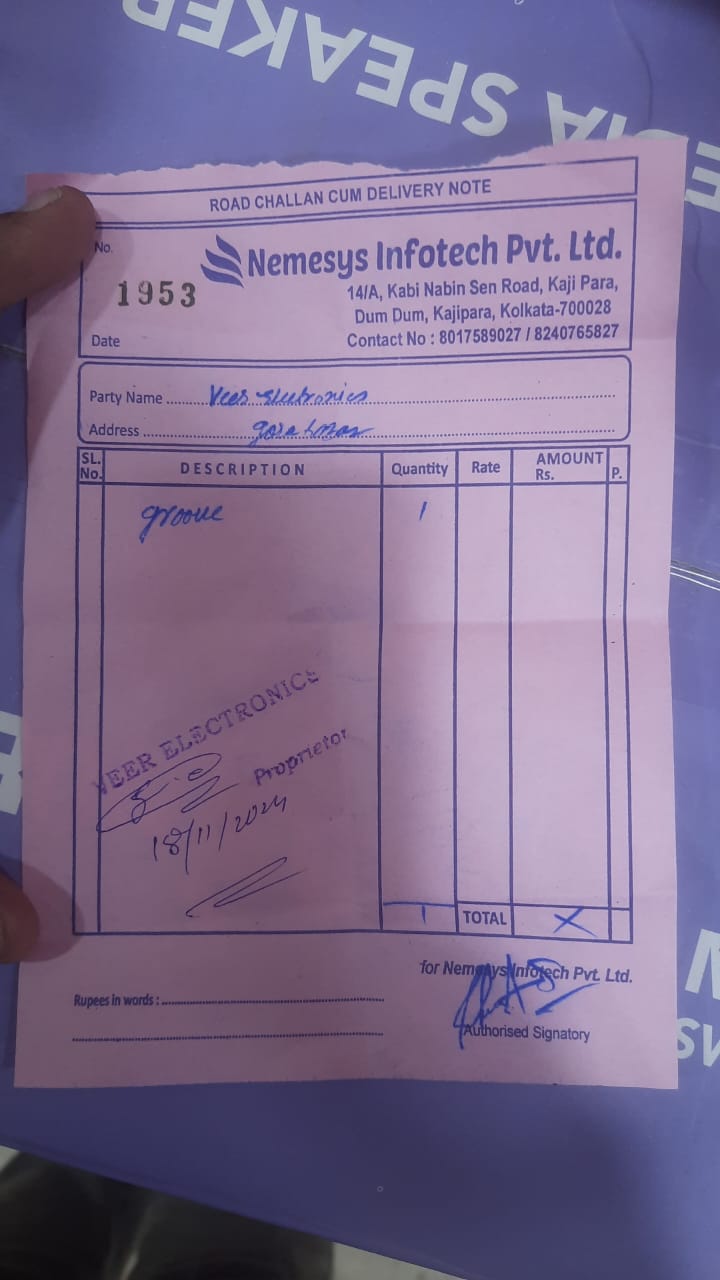 SPEAKER
ROAD CHALLAN CUM DELIVERY NOTE
No.
1953
Date
Nemesys Infotech Pvt. Ltd.
14/A, Kabi Nabin Sen Road, Kaji Para,
Dum Dum, Kajipara, Kolkata-700028
Contact No : 8017589027 / 8240765827
Party Name Veer Electronics
Address
SL. No. DESCRIPTION Quantity Rate AMOUNT Rs. P.
groove 1
VEER ELECTRONICS
Proprietor
18/11/2024
1 TOTAL X
for Nemesys Infotech Pvt. Ltd.
Rupees in words :
Authorised Signatory